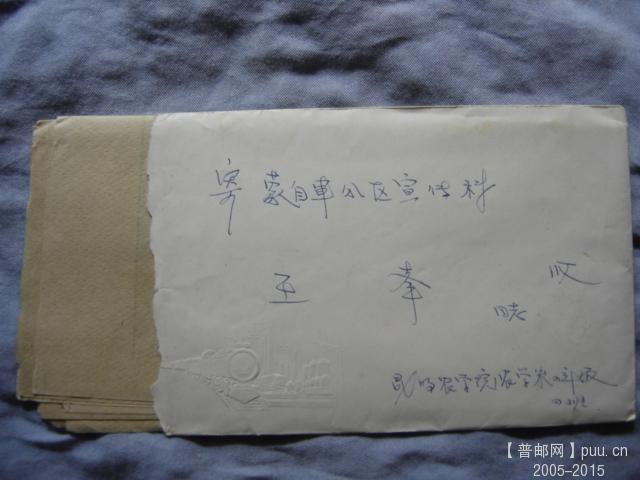 寄蒙自軍分区宣传科
王 峯 收
昆明农学院农学系
【普邮网】puu.cn
2005-2015